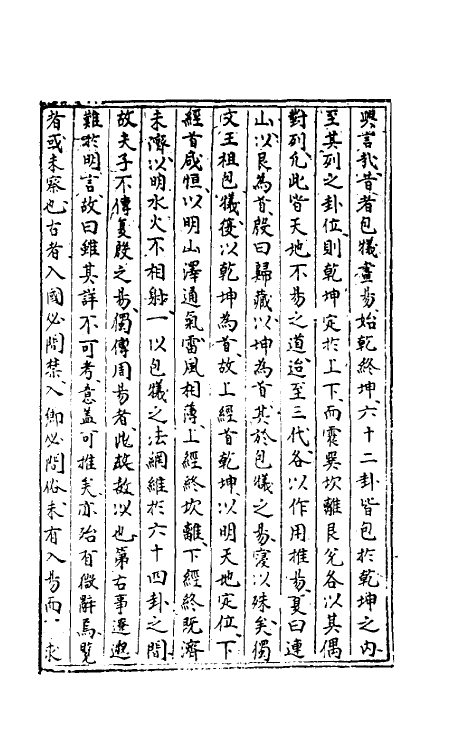 興言哉昔者包犧畫易始乾終坤六十二卦皆包扵乾坤之内
至其列之卦位則乾坤定扵上下而震㢲坎離艮兊各以其偶
對列凢此皆天地不易之道迨至三代各以作用推易夏曰連
山以艮為首殷曰歸藏以坤為首其扵包犧之易寖以殊矣獨
文王祖包犧復以乾坤為首故上經首乾坤以明天地定位下
經首咸恒以明山澤通氣雷風相薄上經終坎離下經終既濟
未濟以明水火不相射一以包犧之法網維扵六十四卦之間
故夫子不傳夏殷之易獨傳周易者此故故以也第古事遼邈
難扵明言故曰雖其詳不可考意盖可推矣亦殆有微辭焉覧
者或未察也古者入國必問禁入鄉必問俗未有入易而求